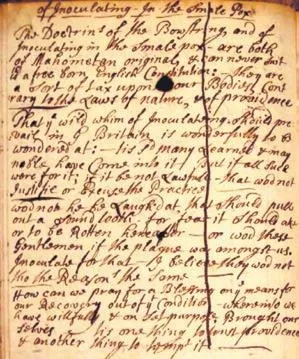 of Inoculating - In the Smale Pox
The Doctrins of the Bowstring, and of
Inoculating in the Smale pox - are both
of Mahometan original, & can never suit
a free born English Constitution: They are
a Sort of tax upon our Bodies, Cont
rary to the Laws of nature, & of providence
That wild whim of Inoculating should pre
vail in G Britain is wonderfully to be
wondered at: - tis so many learned & may
noble, have come into it / But if all Such
were for it; if it be not Lawfull - that wod not
Justifie or Excuse the Practice
wod not he be Laughed at that should pull
out a sound tooth - for fear it should ake
or to be Rotten hereafter - or wod these
Gentlemen if the plague was amongst us.
Inoculate for that I believe they wod not
tho the Reason's the Same
How can we pray for a Blessing on means for
our Recovery out of Condition - whereinto we
have willfully & on set purpose Brought our
selves tis one thing to trust providence
& another thing to tempt it